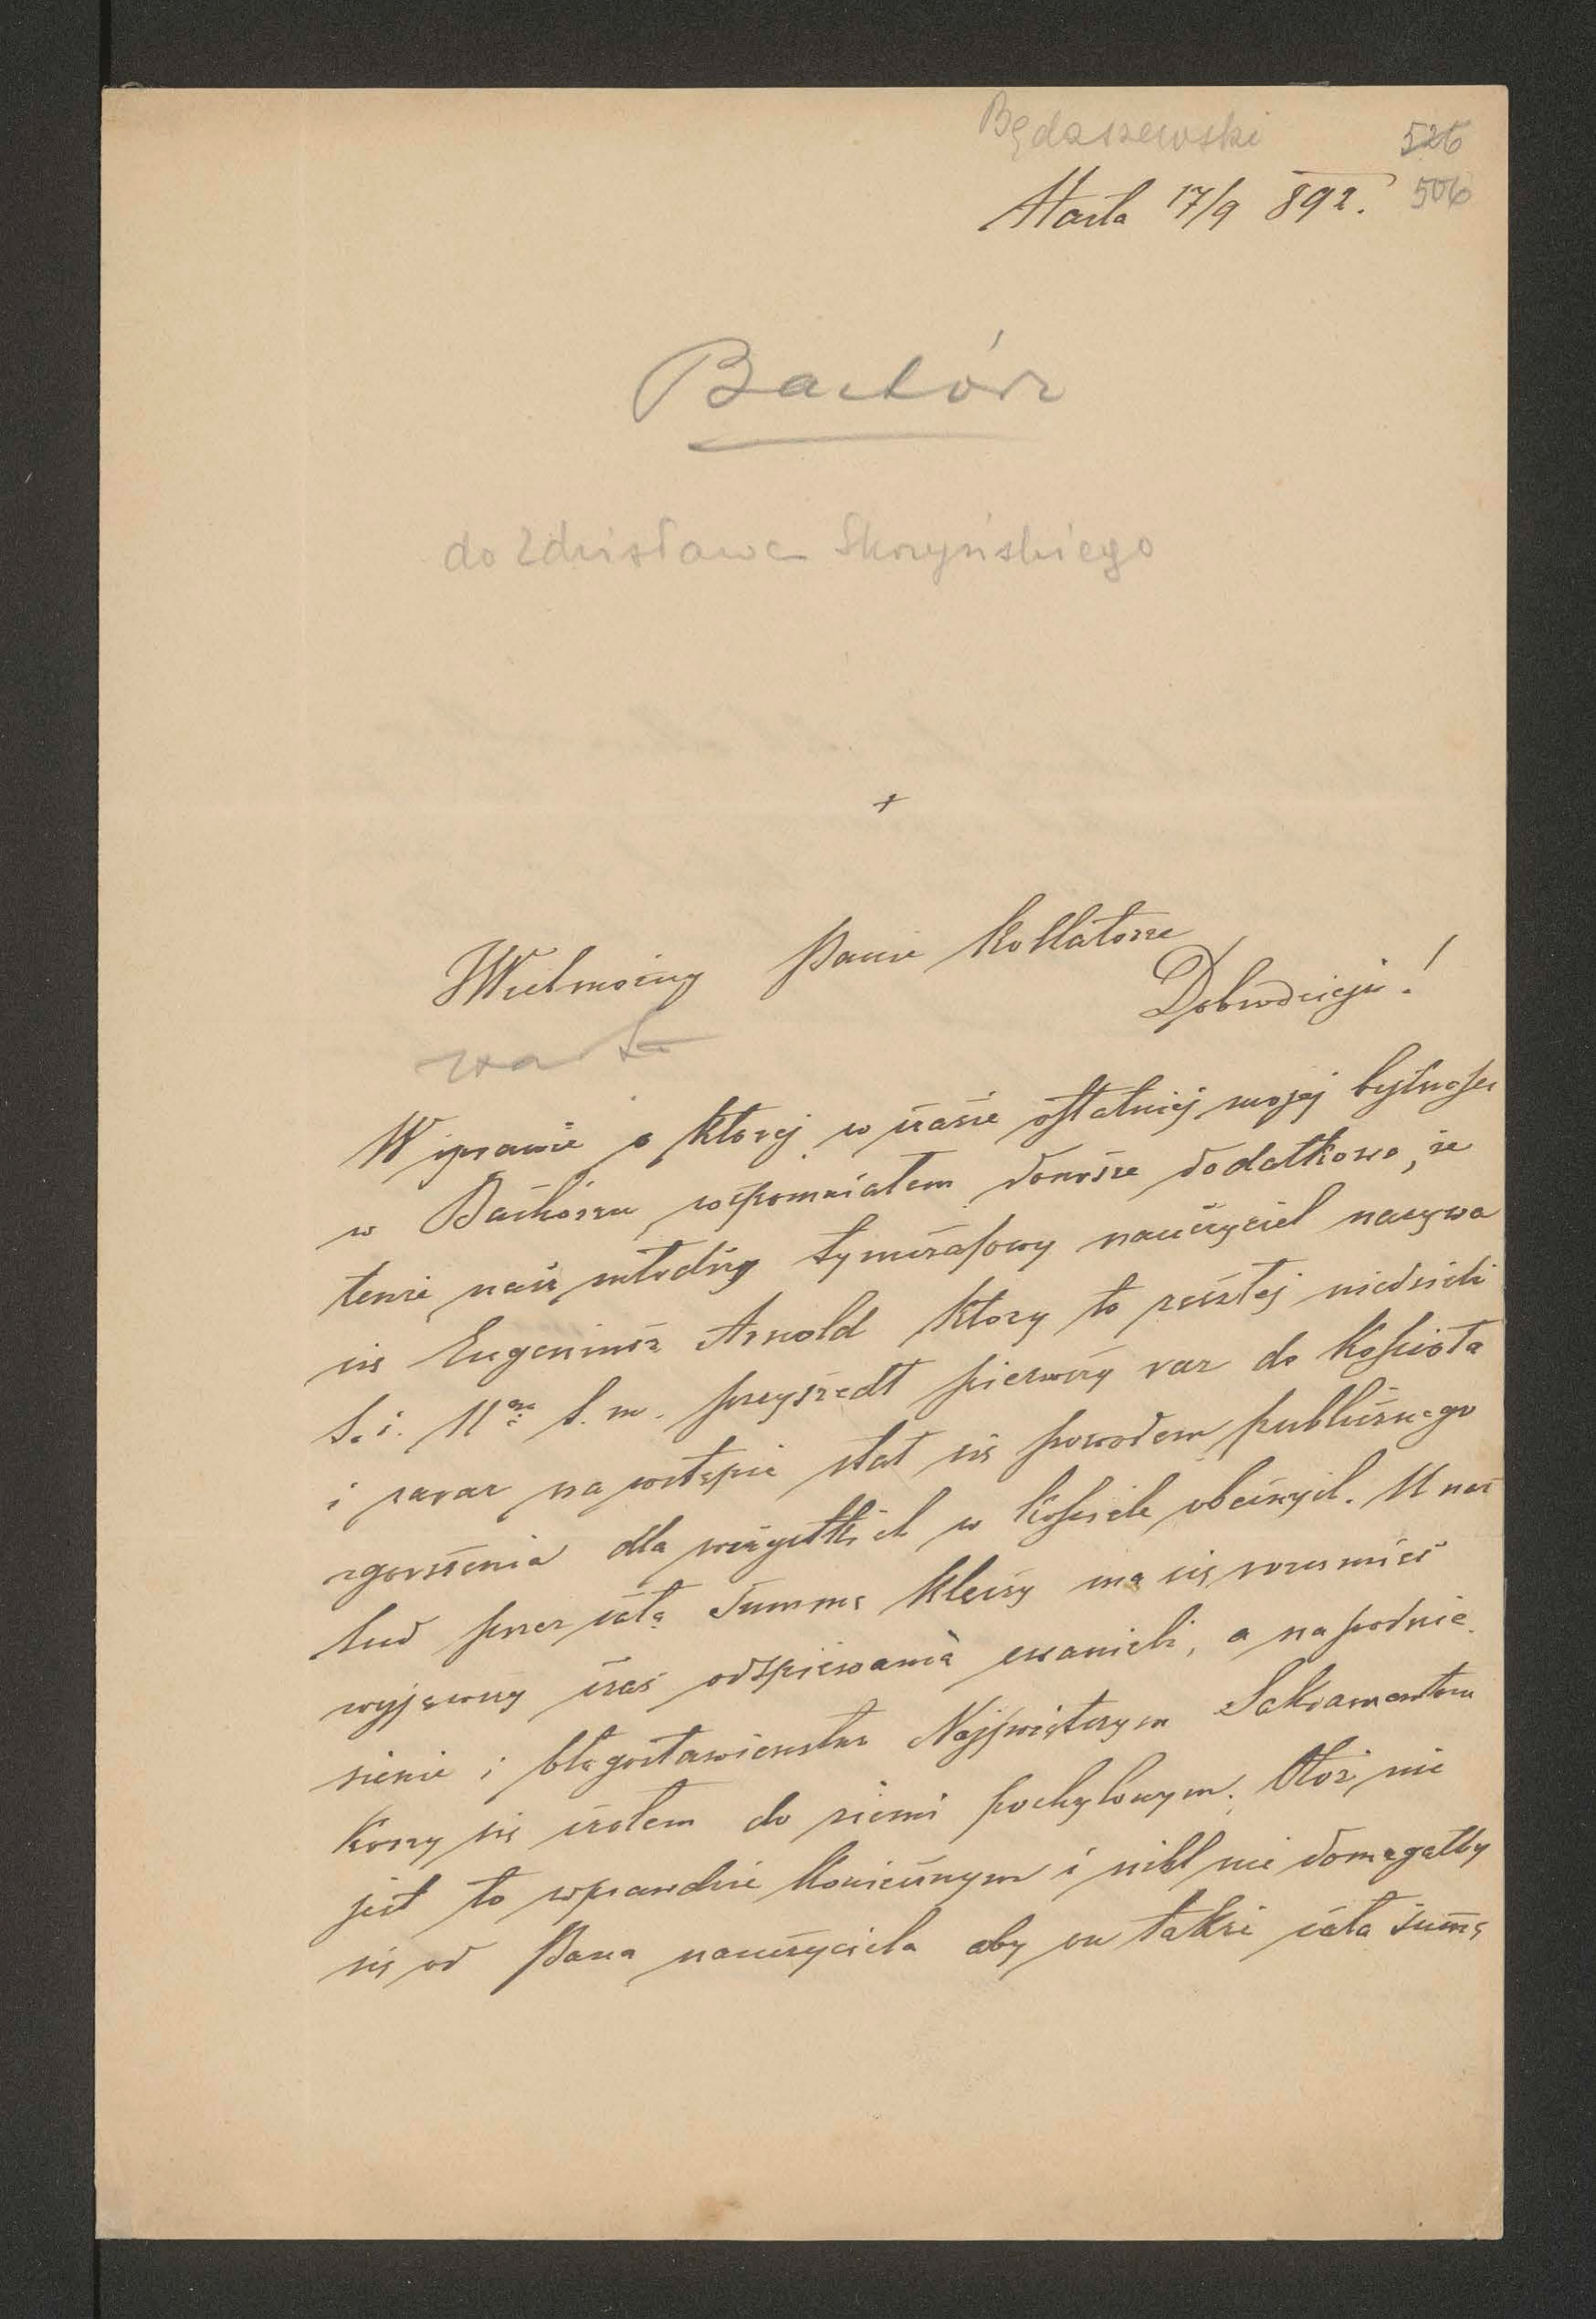 Będaszewski
526
Harta 17/9 892.
506
Bachórz
do Zdzisława Skrzyńskiego
+
Wielmożny Panie Kollatorze
Dobrodzieju!
W sprawie o ktorej w czasie ostatniej mojej bytnosci
w Bachórzu wspomniałem donoszę dodatkowo, że
tenże nasz młodszy tymczasowy nauczyciel nazywa
się Eugeniusz Arnold ktory to zeszłej niedzieli
t. i. 11go b. m. przyszedł pierwszy raz do kościoła
i zaraz na wstępie stał się powodem publicznego
zgorszenia dla wszystkich w kościele obecnych. U nas
lud przez całą Summę klęczy ma się rozumieć
wyjąwszy czas odspiewania ewanielii, a na podnie
sienie i błogosławieństwo Najświętszym Sakramentem
korzy się czołem do ziemi pochylonym. Otoż nie
jest to wprawdzie koniecznym i nikt nie domagałby
się od Pana nauczyciela aby on także całą summę